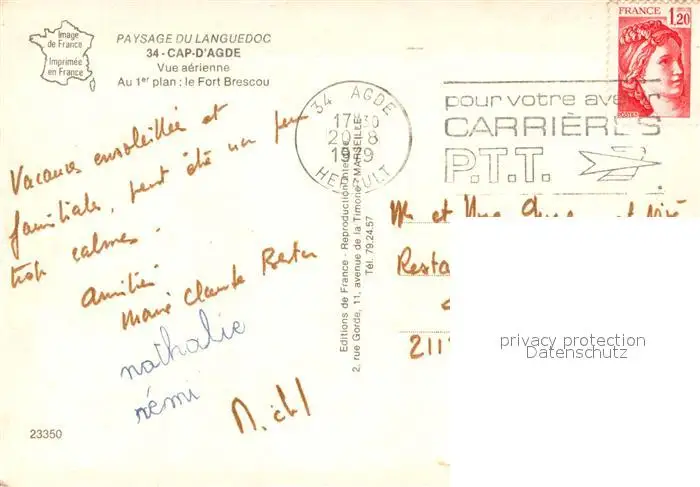 Image
de France
Imprimée
en France
PAYSAGE DU LANGUEDOC
34 - CAP-D'AGDE
Vue aérienne
Au 1er plan : le Fort Brescou
FRANCE
1,20
POSTES
34 AGDE
17 30
20 8
1979
HERAULT
pour votre avenir
CARRIÈRES
P.T.T.
Vacances ensoleillées et
familiales, peut être un peu
trop calmes.
Amitiés
Marie Claude
nathalie
rémi
Editions de France - Reproduction interdite
2, rue Gorde, 11, avenue de la Timone - MARSEILLE
Tél. 79.24.57
Mr et Mme
Resta
211
privacy protection
Datenschutz
23350